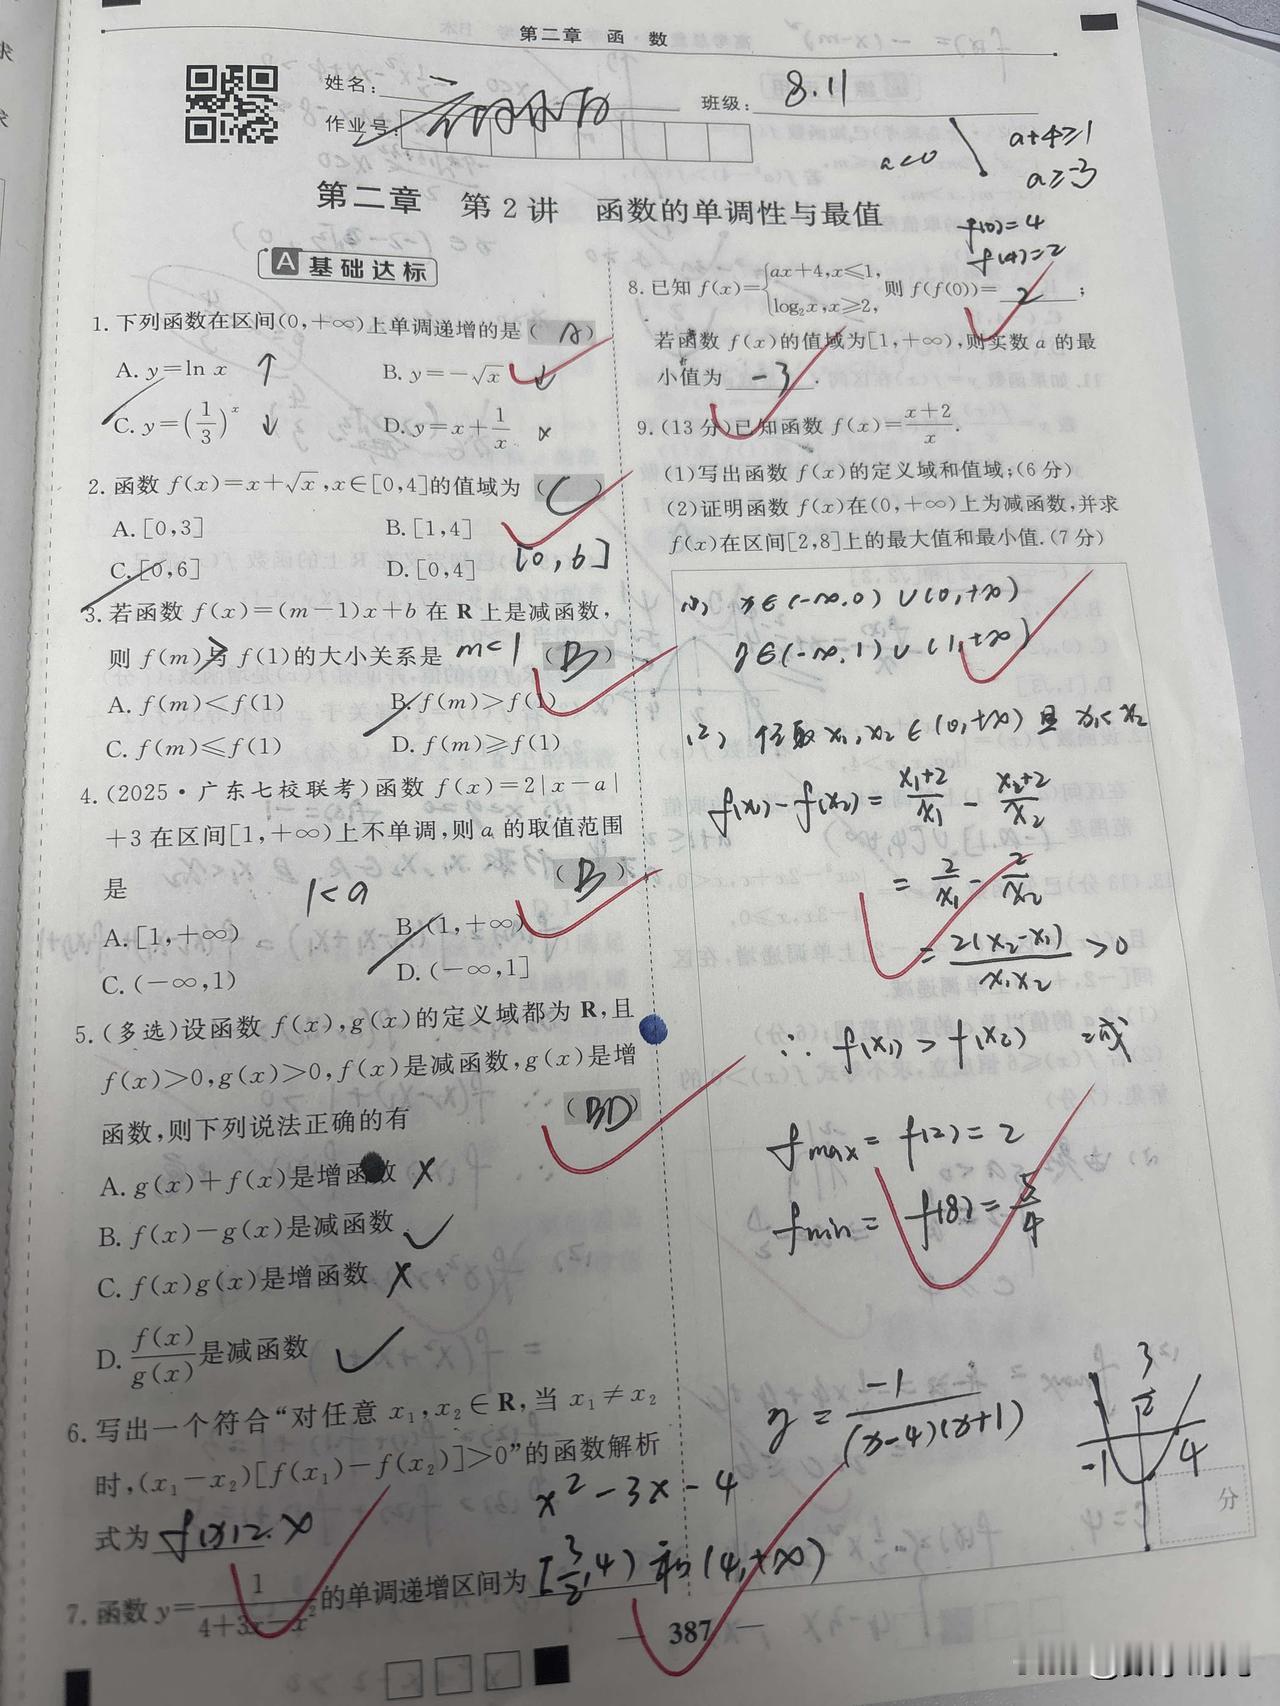 第二章 函 数
姓名:
班级: 8.11
作业号:
a<0
a+4≥1
a≥-3
第二章 第2讲 函数的单调性与最值
A 基础达标
1. 下列函数在区间(0,+∞)上单调递增的是( A )
A. y=ln x ↑
B. y=-√x ↓
C. y=(1/3)^x ↓
D. y=x+1/x ×
2. 函数 f(x)=x+√x,x∈[0,4]的值域为( C )
A. [0,3]
B. [1,4]
C. [0,6]
D. [0,4]
[0,6]
3. 若函数 f(x)=(m-1)x+b 在 R 上是减函数,
则 f(m)与 f(1)的大小关系是 m<1 ( B )
A. f(m)<f(1)
B. f(m)>f(1)
C. f(m)≤f(1)
D. f(m)≥f(1)
4. (2025·广东七校联考)函数 f(x)=2|x-a|
+3在区间[1,+∞)上不单调,则 a 的取值范围
是 1<a ( B )
A. [1,+∞)
B. (1,+∞)
C. (-∞,1)
D. (-∞,1]
5. (多选)设函数 f(x),g(x)的定义域都为 R,且
f(x)>0,g(x)>0,f(x)是减函数,g(x)是增
函数,则下列说法正确的有 ( BD )
A. g(x)+f(x)是增函数 ×
B. f(x)-g(x)是减函数 ✓
C. f(x)g(x)是增函数 ×
D. f(x)/g(x)是减函数 ✓
6. 写出一个符合“对任意 x₁,x₂∈R,当 x₁≠x₂
时,(x₁-x₂)[f(x₁)-f(x₂)]>0”的函数解析
式为 f(x)=x
x²-3x-4
7. 函数 y=1/(4+3x-x²)的单调递增区间为 [3/2,4) 和(4,+∞)
f(0)=4
f(4)=2
8. 已知 f(x)={ax+4,x≤1, log₂x,x≥2, 则 f(f(0))= 2 ;
若函数 f(x)的值域为[1,+∞),则实数 a 的最
小值为 -3 .
9. (13分)已知函数 f(x)=(x+2)/x.
(1)写出函数 f(x)的定义域和值域;(6分)
(2)证明函数 f(x)在(0,+∞)上为减函数,并求
f(x)在区间[2,8]上的最大值和最小值.(7分)
(1) x∈(-∞,0)∪(0,+∞)
y∈(-∞,1)∪(1,+∞)
(2) 任取 x₁,x₂∈(0,+∞)且 x₁<x₂
f(x₁)-f(x₂)=(x₁+2)/x₁-(x₂+2)/x₂
=2/x₁-2/x₂
=2(x₂-x₁)/x₁x₂>0
∴ f(x₁)>f(x₂) =减
fmax=f(2)=2
fmin=f(8)=5/4
y=-1/(x-4)(x+1)
3/2
-1
4
分
387